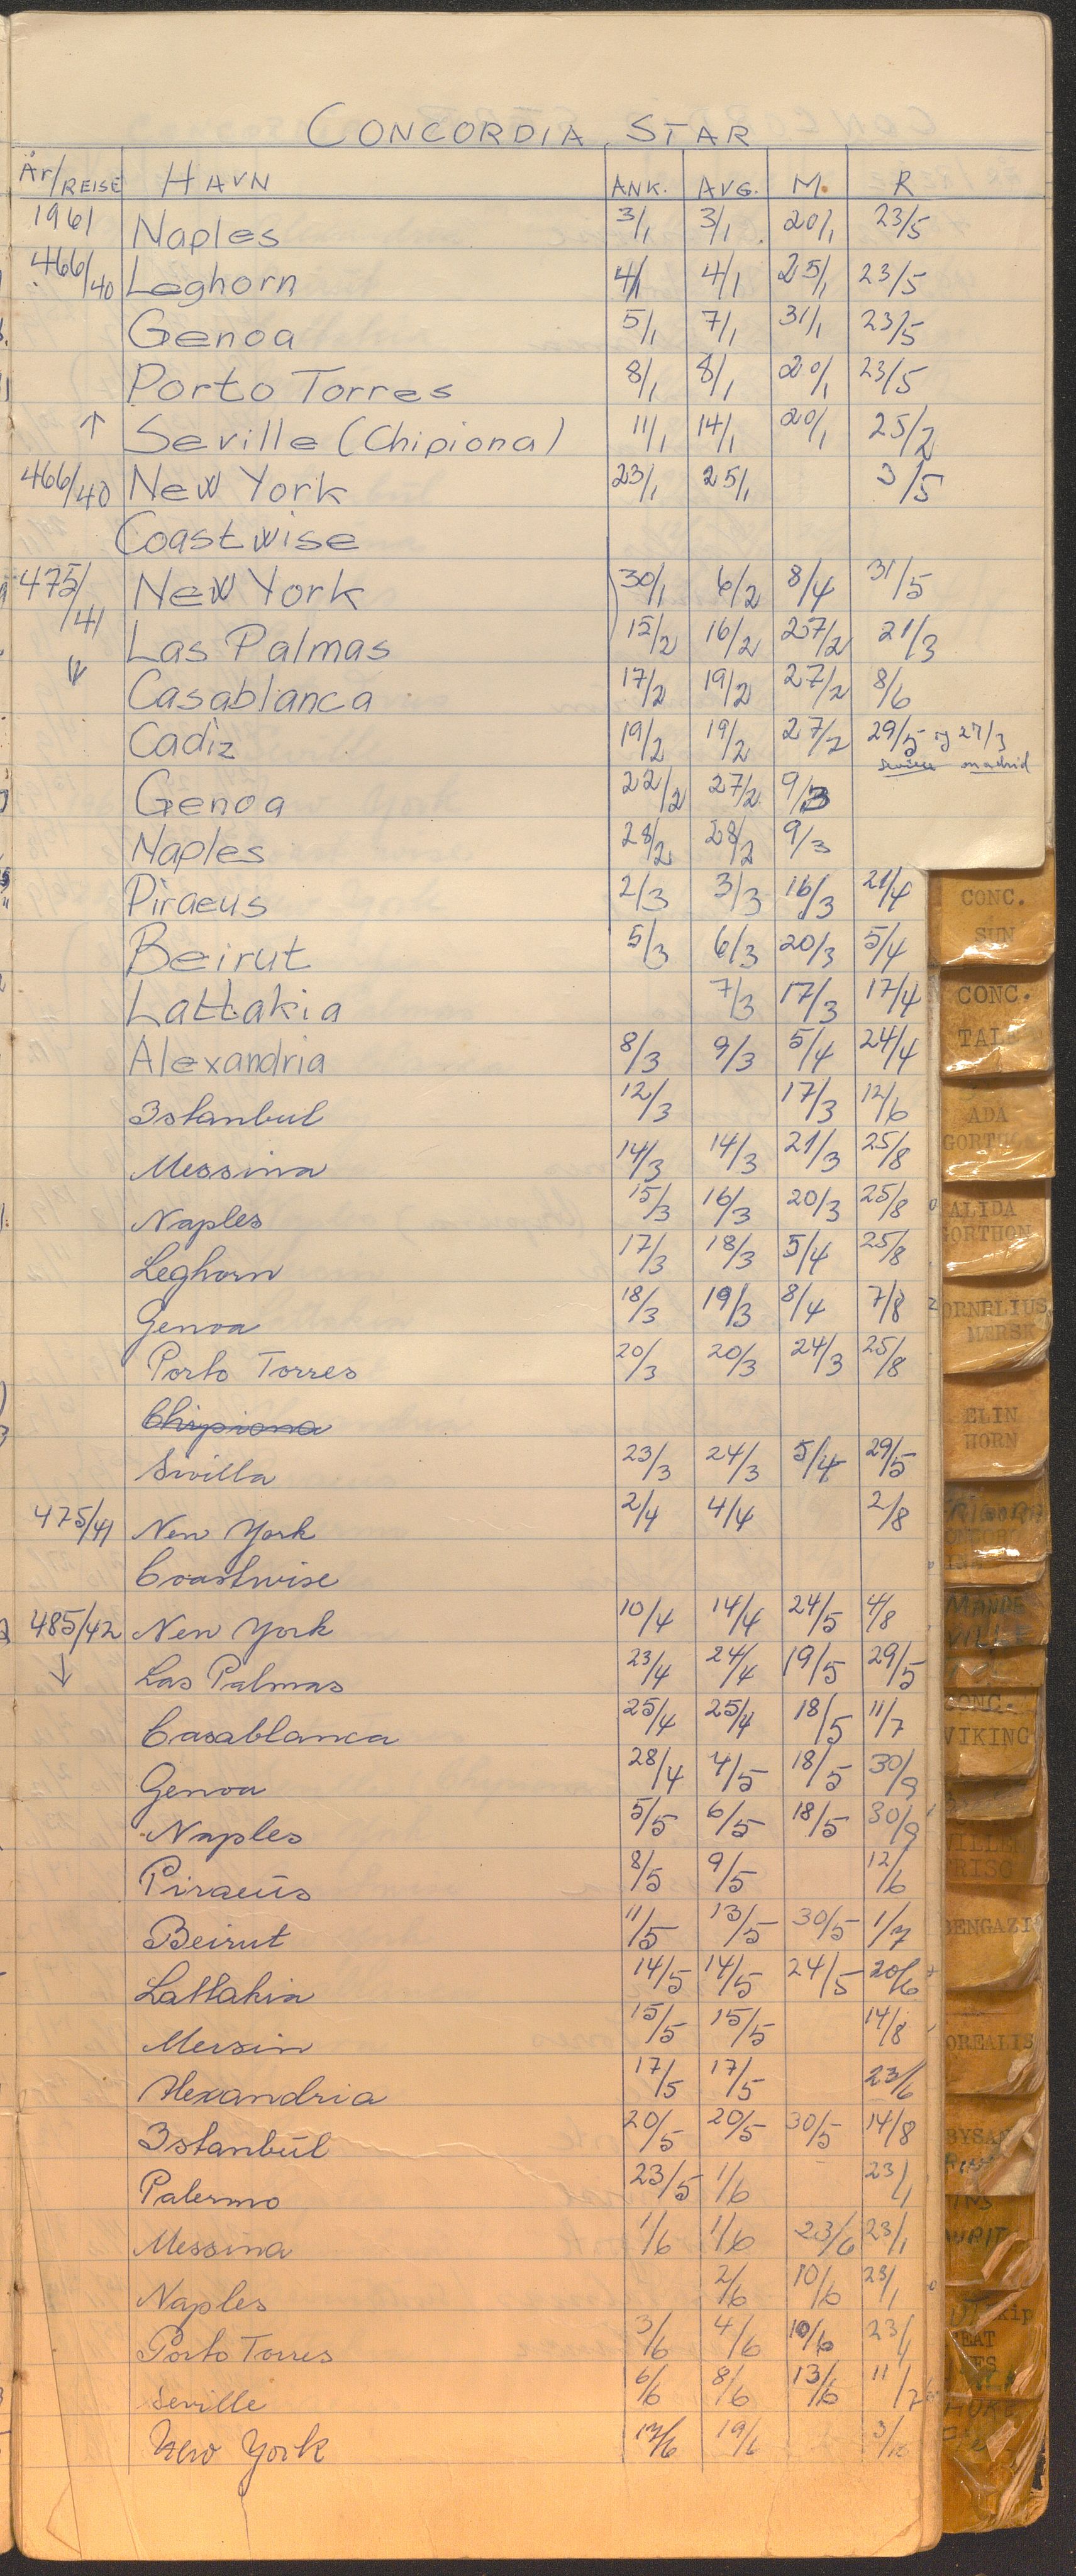 CONCORDIA STAR
År/REISE HAVN ANK. AVG. M. R
1961 Naples 3/1 3/1 20/1 23/5
466/40 Leghorn 4/1 4/1 25/1 23/5
Genoa 5/1 7/1 31/1 23/5
Porto Torres 8/1 8/1 20/1 23/5
↑ Seville (Chipiona) 11/1 14/1 20/1 25/2
466/40 New York 23/1 25/1 3/5
Coastwise
475/41 New York 30/1 6/2 8/4 31/5
Las Palmas 15/2 16/2 27/2 21/3
↓ Casablanca 17/2 19/2 27/2 8/6
Cadiz 19/2 19/2 27/2 29/5 og 27/3
madrid
Genoa 22/2 27/2 9/3
Naples 28/2 28/2 9/3
Piraeus 2/3 3/3 16/3 21/4
Beirut 5/3 6/3 20/3 5/4
Lattakia 7/3 17/3 17/4
Alexandria 8/3 9/3 5/4 24/4
Istanbul 12/3 17/3 12/6
Messina 14/3 14/3 21/3 25/8
Naples 15/3 16/3 20/3 25/8
Leghorn 17/3 18/3 5/4 25/8
Genoa 18/3 19/3 8/4 7/8
Porto Torres 20/3 20/3 24/3 25/8
Chipiona
Sivilla 23/3 24/3 5/4 29/5
475/41 New York 2/4 4/4 2/8
Coastwise
485/42 New York 10/4 14/4 24/5 4/8
↓ Las Palmas 23/4 24/4 19/5 29/5
Casablanca 25/4 25/4 18/5 11/7
Genoa 28/4 4/5 18/5 30/9
Naples 5/5 6/5 18/5 30/9
Piraeus 8/5 9/5 12/6
Beirut 11/5 13/5 30/5 1/7
Lattakia 14/5 14/5 24/5 20/6
Mersin 15/5 15/5 14/8
Alexandria 17/5 17/5 23/6
Istanbul 20/5 20/5 30/5 14/8
Palermo 23/5 1/6 23/1
Messina 1/6 1/6 23/6 23/1
Naples 2/6 10/6 23/1
Porto Torres 3/6 4/6 10/6 23/1
Seville 6/6 8/6 13/6 11/7
New York 19/6
CONC.
SUN
CONC.
TAL
ADA
GORTHON
ALIDA
GORTHON
CORNELIUS
MERSK
ELIN
HORN
MANDE
VILLE
CONC.
VIKING
BENGAZI